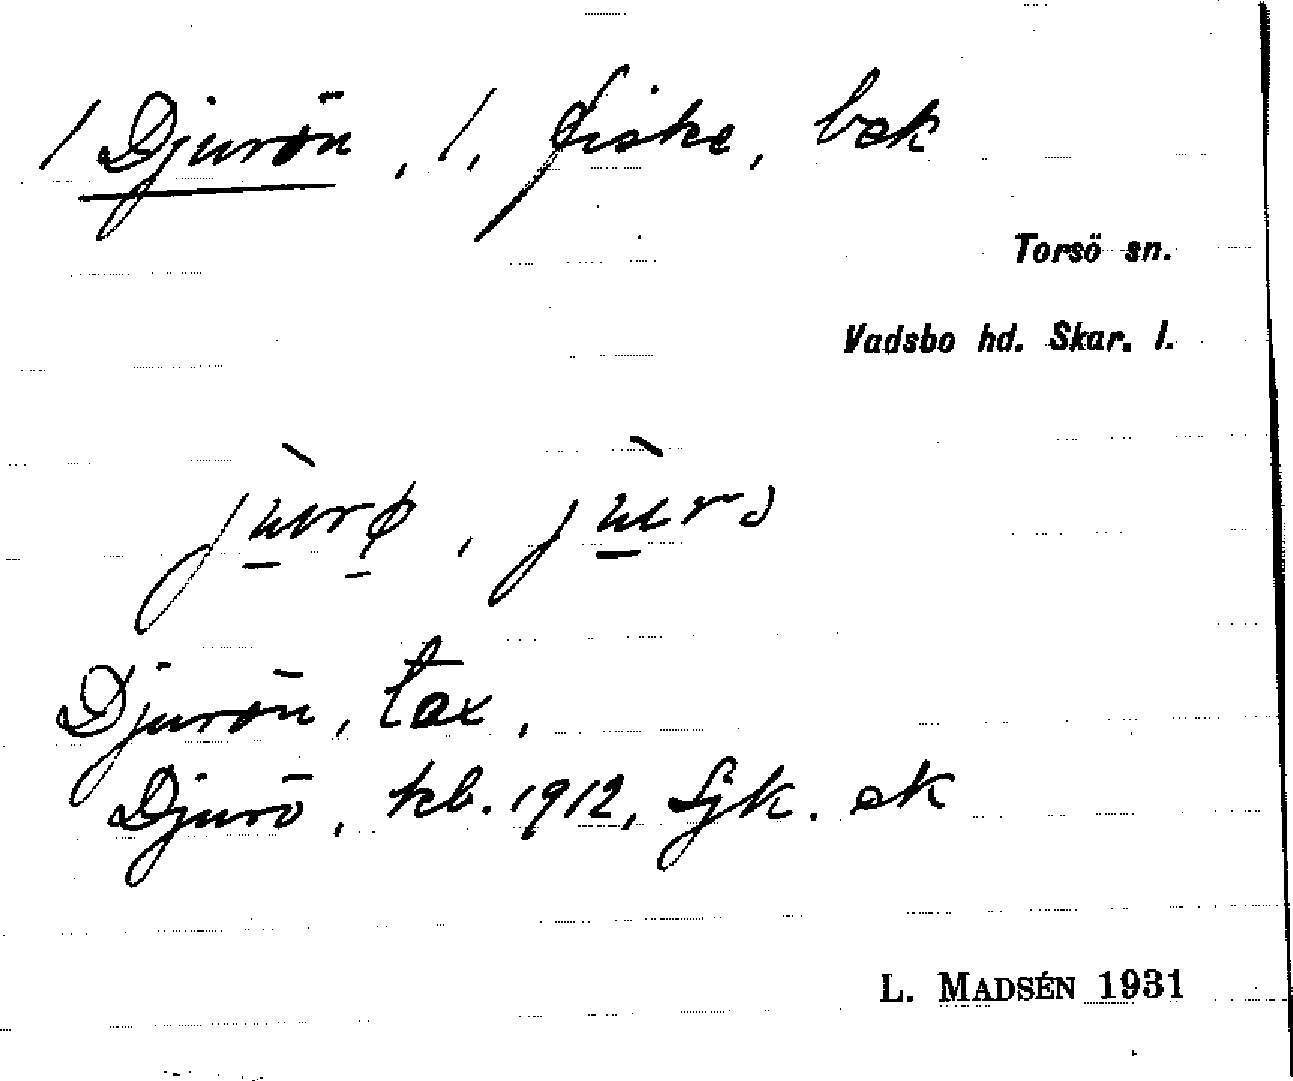 / Djurön, 1, fiske, bek
Torsö sn.
Vadsbo hd. Skar. l.
Djurön, tax.
Djurö, kb. 1912, Sjk. ek
L. MADSÉN 1931